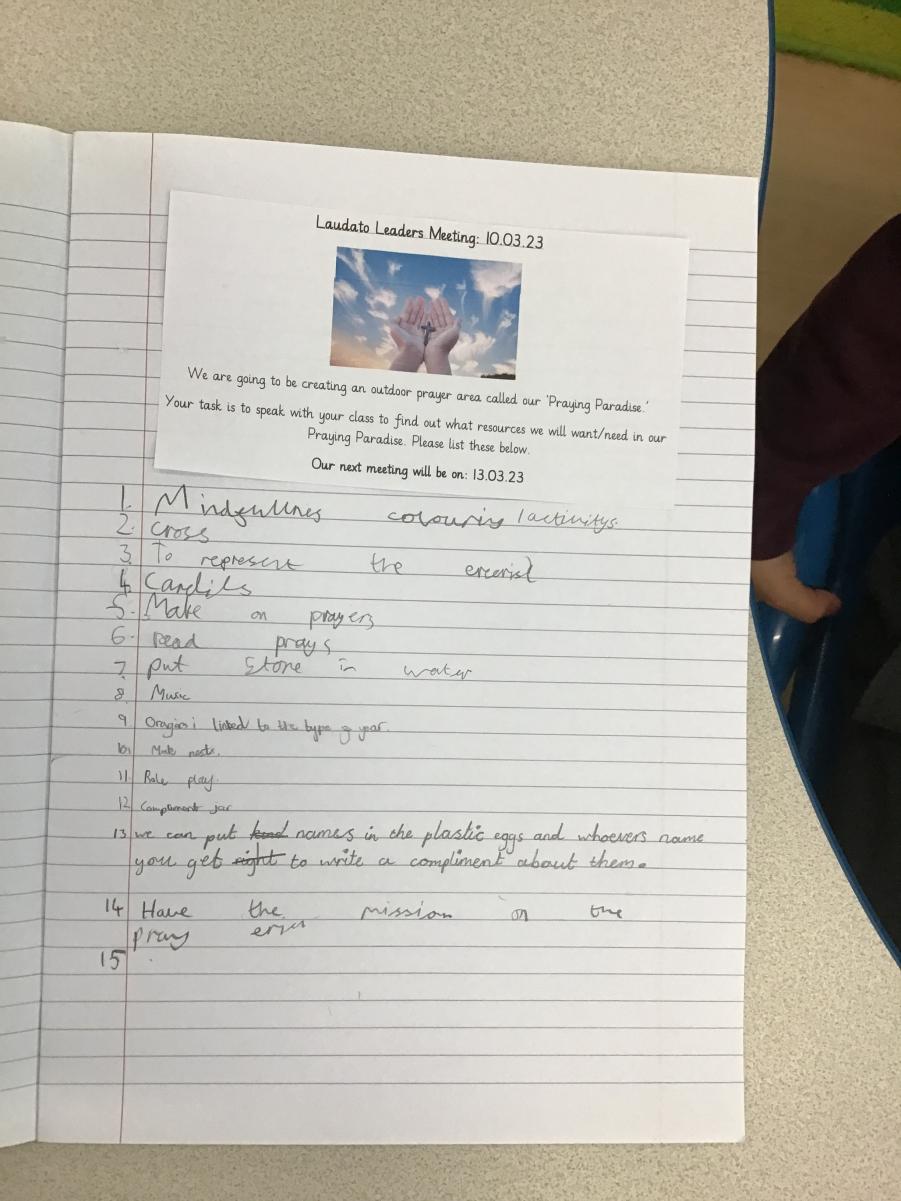 Laudato Leaders Meeting: 10.03.23
We are going to be creating an outdoor prayer area called our 'Praying Paradise.'
Your task is to speak with your class to find out what resources we will want/need in our
Praying Paradise. Please list these below.
Our next meeting will be on: 13.03.23
1. Mindfullnes colouring /activitys.
2. Cross
3. To represent the
4. Candils
5. Make on prayers
6. read prays
7. put stone in water
8. Music
9 linked to the type of year.
10. Make
11. Role play.
12. Compliment jar
13 we can put kind names in the plastic eggs and whoevers name
you get right to write a compliment about them.
14 Have the mission on the
pray
15